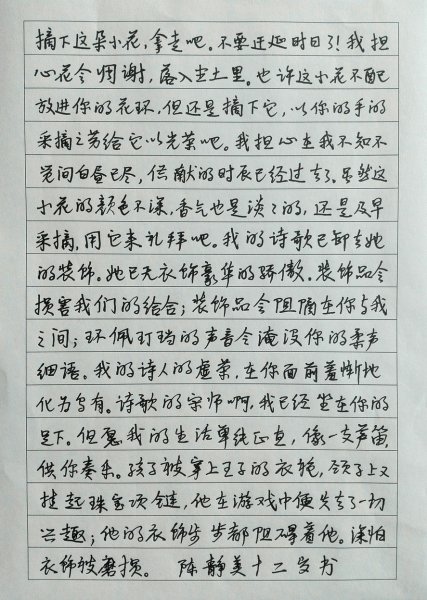 摘下这朵小花,拿走吧。不要迁延时日了!我担
心花会凋谢,落入尘土里。也许这小花不配
放进你的花环,但还是摘下它,以你的手的
采摘之劳给它以光荣吧。我担心在我不知不
觉间白昼已尽,供献的时辰已经过去了。虽然这
小花的颜色不深,香气也是淡淡的,还是及早
采摘,用它来礼拜吧。我的诗歌已卸去她
的装饰。她已无衣饰豪华的骄傲。装饰品会
损害我们的结合;装饰品会阻隔在你与我
之间;环佩叮珰的声音会淹没你的柔声
细语。我的诗人的虚荣,在你面前羞惭地
化为乌有。诗歌的宗师啊,我已经坐在你的
足下。但愿我的生活单纯正直,像一支芦笛,
供你奏乐。孩子被穿上王子的衣袍,颈子上又
挂起珠宝项链,他在游戏中便失去了一切
兴趣;他的衣饰步步都阻碍着他。深怕
衣饰被磨损。 陈静美十二岁书